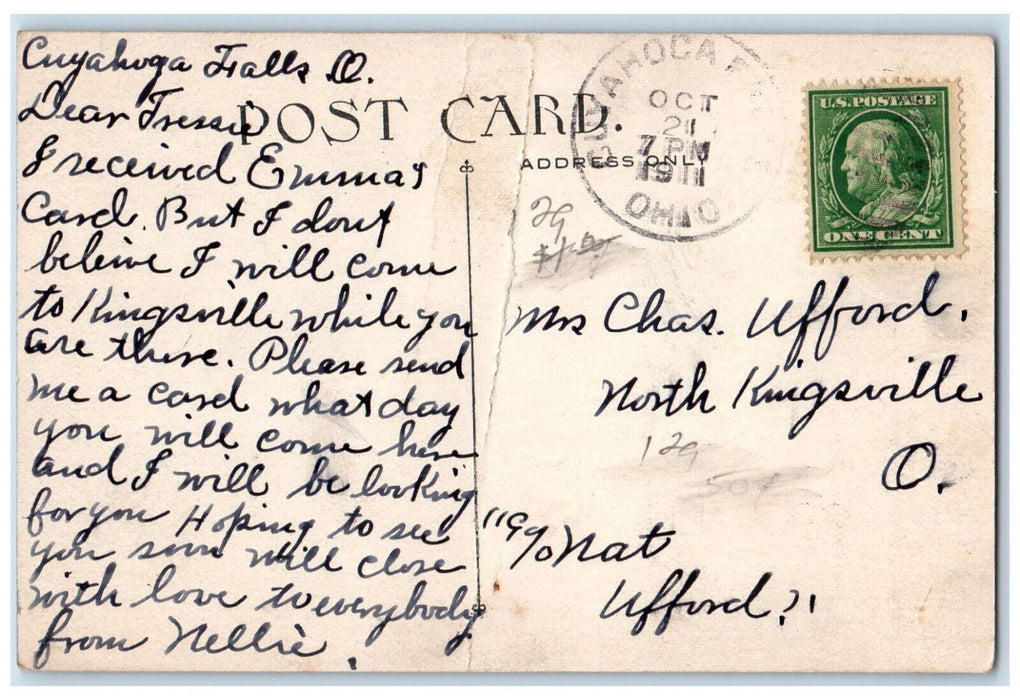 Cuyahoga Falls O.
Dear Tressie
I received Emmas
Card. But I dont
beleive I will come
to Kingsville while you
are there. Please send
me a card what day
you will come here
and I will be looking
for you Hoping to see
you soon will close
with love to everybody
from Nellie.
POST CARD.
ADDRESS ONLY
CUYAHOGA F
OCT
21
7 PM
1911
OHIO
U.S. POSTAGE
ONE CENT
Mrs Chas. Ufford,
North Kingsville
O.
"c/o Nat
Ufford."
129
50¢